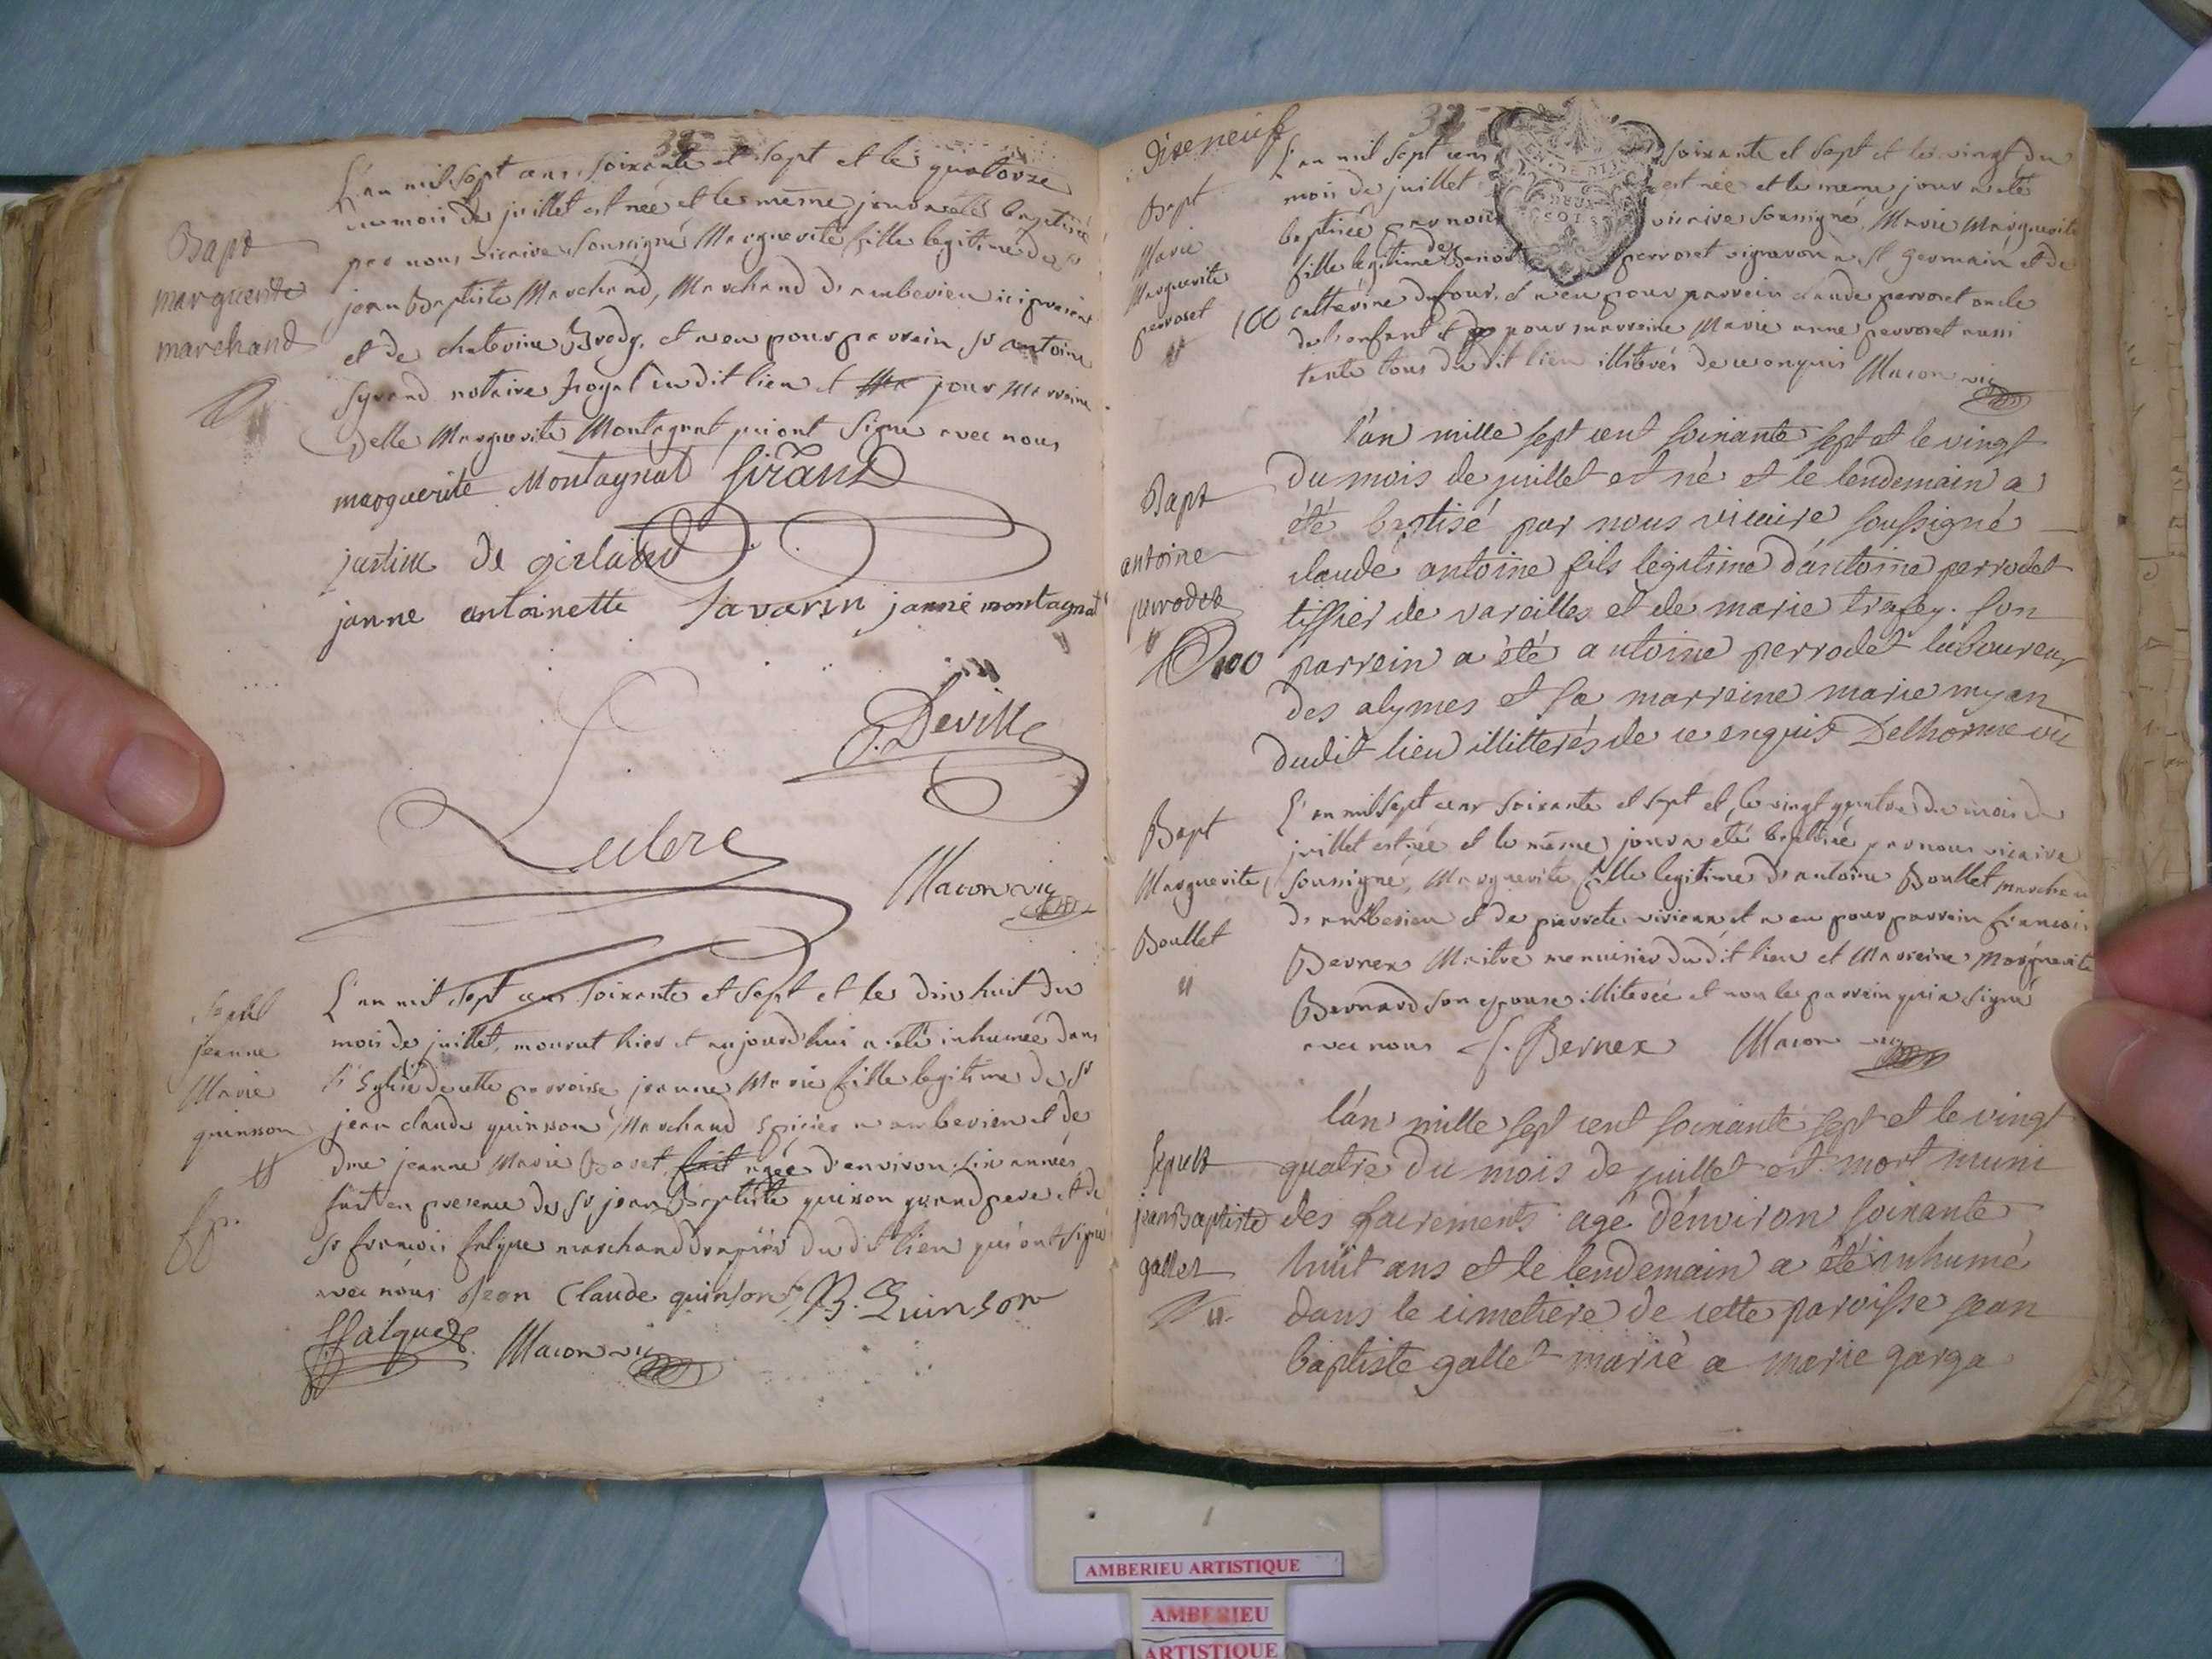 32
Bapt
marguerite
marchand
L'an mil sept cens soixante et sept et le quatorze
du mois de juillet est née et le même jour a eté baptisée
par nous vicaire soussigné Marguerite fille legitime de sr
jean Baptiste Marchand, Marchand d'ambevieu ici present
et de chaterine Brody, et a eu pour parrain sr antoine
Syrand notaire royal dudit lieu et pour Marraine
delle Marguerite Montagnat qui ont signé avec nous
marguerite Montagnat Sirand
justine de girland
janne antoinette Savarin janne montagnat
J. Deville
Leclerc
Macon vic
Sepul
jeanne
Marie
quinson
L'an mil sept cens soixante et sept et le dix huit du
mois de juillet, mourut hier et aujourd'hui a eté inhumée dans
l'Eglise de cette parroisse jeanne Marie fille legitime de sr
jean claude quinson, Marchand Epicier a ambevieu et de
dme jeanne Marie Bovet, fait agée d'environ six années
fait en presence de sr jean Baptiste quinson grand pere et de
sr francois falque marchand drapier du dit lieu qui ont signé
avec nous Jean Claude quinson B. Quinson
Falque Macon vic
dixeneuf
33
Bapt
Marie
Marguerite
perroset
L'an mil sept cens soixante et sept et le vingt du
mois de juillet est née et le meme jour a eté
baptisée par nous vicaire soussigné Marie Marguerite
fille legitime de Benoit perroset vigneron a St germain et de
100 catterine dufour, et a eu pour parrein claude perroset oncle
de l'enfant et pour marreine Marie anne perroset aussi
tante tous dudit lieu illiterés de ce enquis Macon vic
Bapt
antoine
perrodet
100
l'an mille sept cent soixante sept et le vingt
du mois de juillet est né et le lendemain a
été baptisé par nous vicaire soussigné
claude antoine fils legitime d'antoine perrodet
tissier de vareilles et de marie trafey. son
parrein a été antoine perrodet laboureur
des alymes et sa marreine marie myan
dudit lieu illitterés de ce enquis Delhorme vic
Bapt
Marguerite
Boullet
L'an mil sept cens soixante et sept et le vingt quatre du mois de
juillet est née et le même jour a eté baptisée par nous vicaire
soussigné, Marguerite fille legitime d'antoine Boullet marchand
d'ambevieu et de pierrete vivien et a eu pour parrein francois
Bernex Maitre menuisier du dit lieu et Marreine Marguerite
Bernard son epouse illiterée et non le parrein qui a signé
avec nous f. Bernex Macon vic
Sepult
jean Baptiste
gallet
l'an mille sept cent soixante sept et le vingt
quatre du mois de juillet est mort muni
des sacrements agé d'environ soixante
huit ans et le lendemain a été inhumé
dans le cimetiere de cette paroisse jean
baptiste gallet marié a marie garga
AMBERIEU ARTISTIQUE
AMBERIEU
ARTISTIQUE